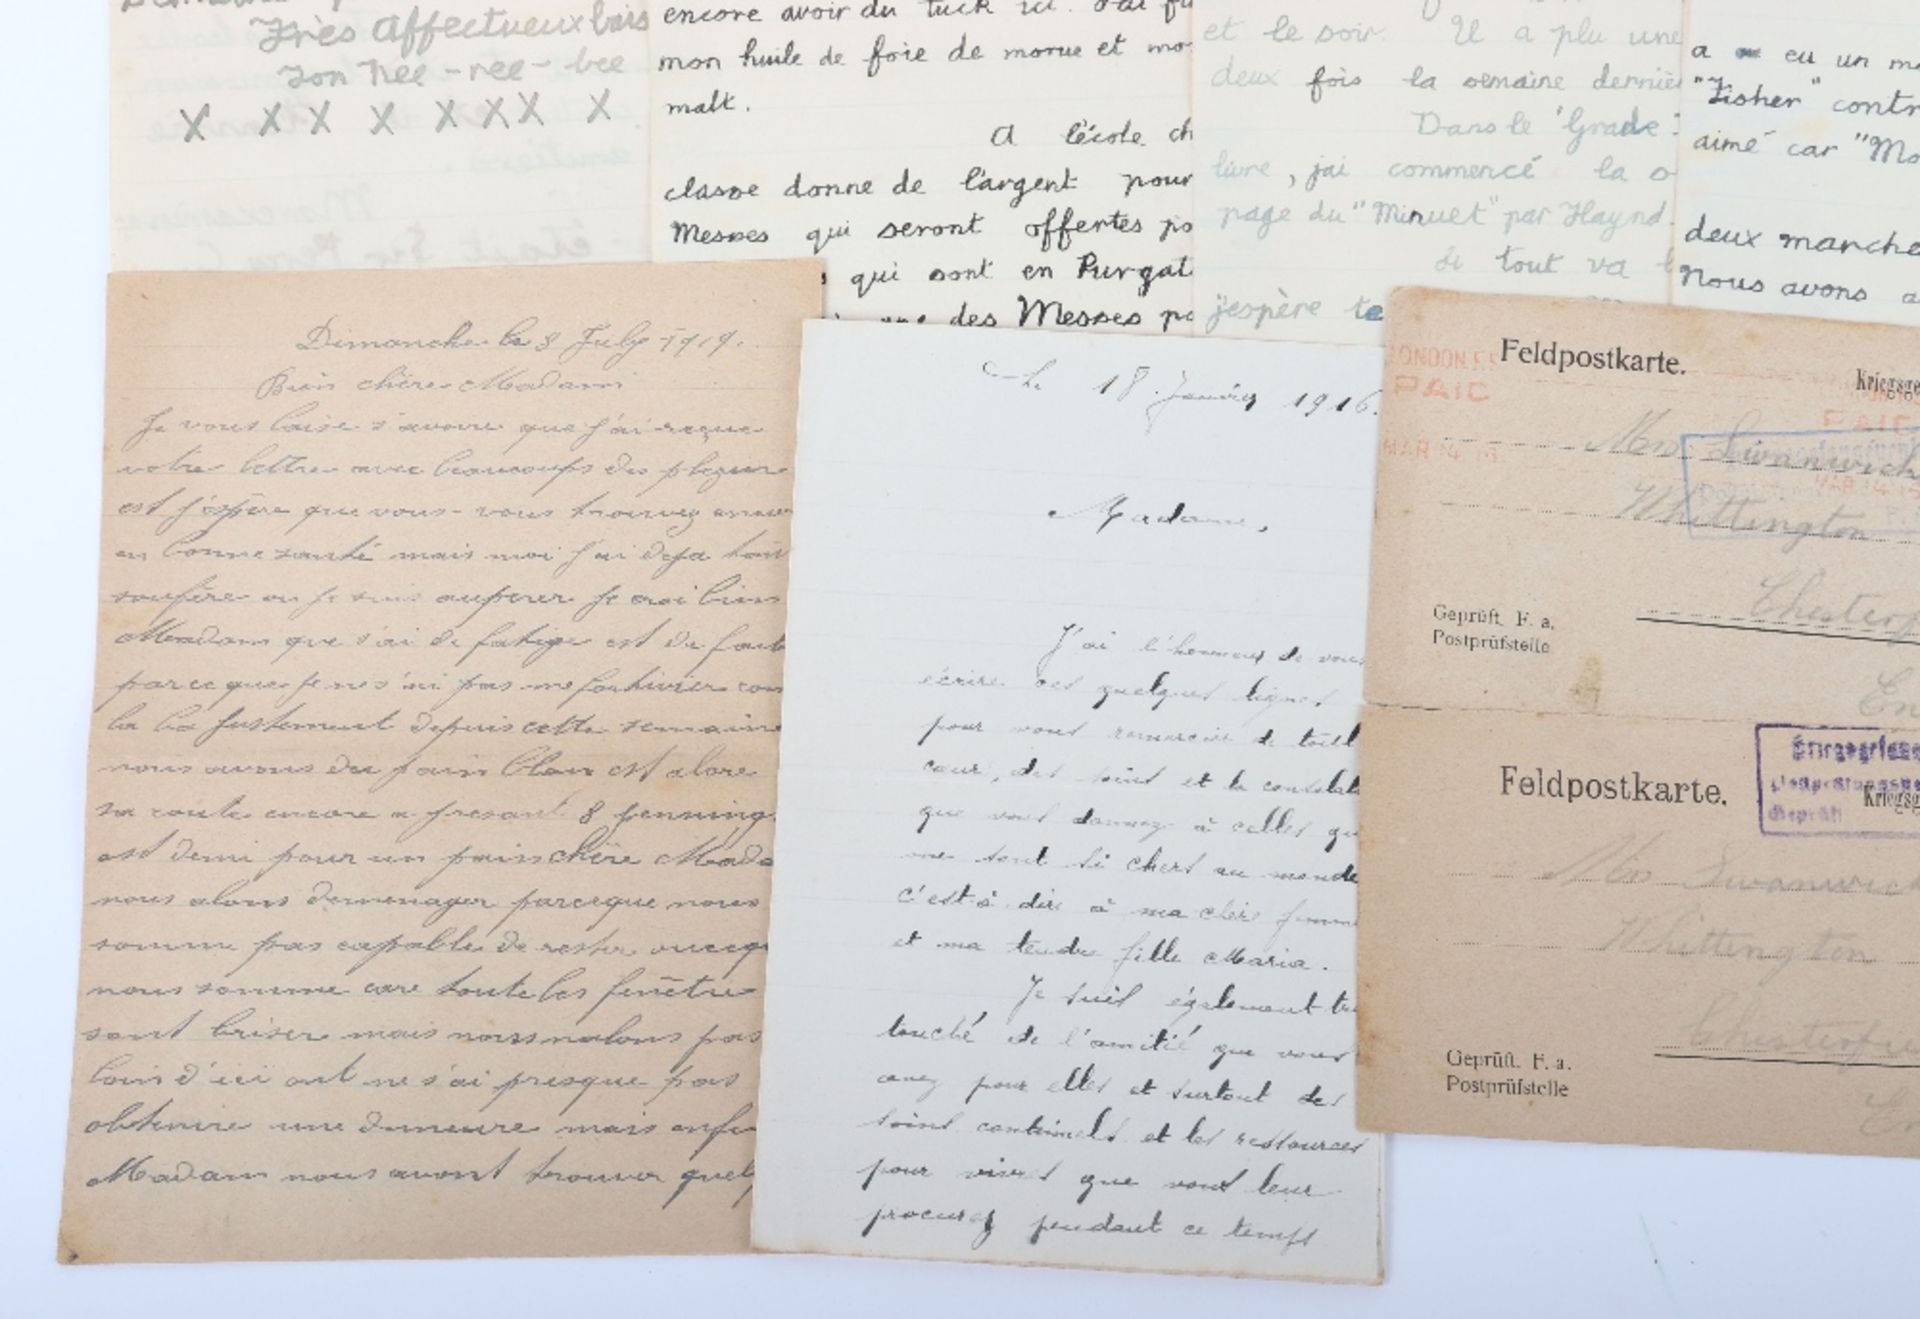 Très Affectueux bais
Ton Nee-nee-bee
X X X X X X X X
encore avoir du tuck ici. J'ai
mon huile de foie de morue et mo
malt.
A l'école ch
classe donne de l'argent pour
Messes qui seront offertes po
qui sont en Purgat
des Messes po
et le soir. Il a plu une
deux fois la semaine derniè
Dans le 'Grade
livre, j'ai commencé la
page du "Minuet" par Haynd.
Si tout va
j'espère te
a eu un ma
"Fisher" contr
aimé car "Mo
deux marche
Nous avons a
Dimanche le 8 July 1919.
Bien chère Madam
Je vous laise s'avoire que j'ai reçue
votre lettre avec beaucoups des plezier
est j'éspère que vous-vous trouvez encor
en bonne santé mais moi j'ai deja
soufère ou je suis auperer je croi bien
Madam que s'ai de fatige est de
parceque je ne s'ai pas me
justement depuis cette semaine
nous avons du pain blan est alore
sa coute encore a presant 8 penning
est demi pour un pain chère Mada
nous alons demenager parceque nous
somme pas capable de rester
nous somme care toute les fenêtre
sont briser mais nous nalons pas
loin d'ici ont ne s'ai presque pas
obtenire une demeure mais enfin
Madam nous avont trouver quelq
Le 18 Janvier 1916.
Madame,
J'ai l'honneur de vous
écrire ces quelques lignes
pour vous remercier de tout
cœur, des soins et la consolat
que vous donnez à celles qu
me sont si chers au monde
c'est-à-dire à ma chère femme
et ma tendre fille Maria.
Je suis également tr
touché de l'amitié que vous
avez pour elles et surtout des
soins continuels et les ressources
pour vivres que vous leur
procurez pendant ce temps
LONDON F.S
PAID
MAR 14
Feldpostkarte.
Kriegsge
PAID
MAR 14
Mrs Swanwick
Whittington
Chesterf
Geprüft. F. a.
Postprüfstelle
En
Feldpostkarte.
Kriegsg
Geprüft
Mrs Swanwick
Whittington
Chesterfie
Geprüft. F. a.
Postprüfstelle
En